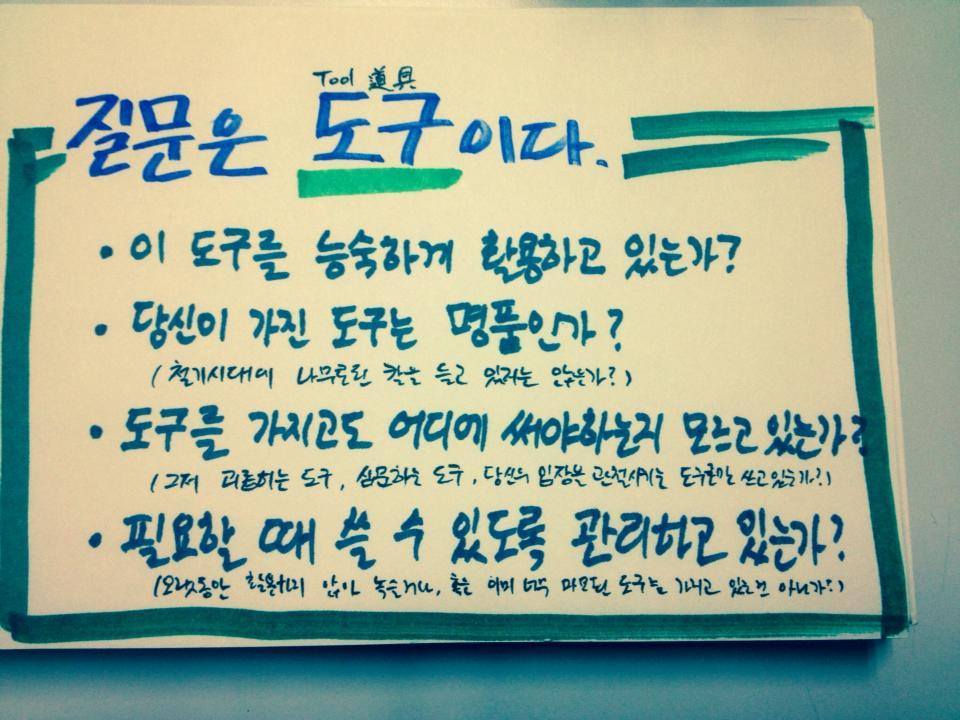 Tool 道具
질문은 도구이다.
• 이 도구를 능숙하게 활용하고 있는가?
• 당신이 가진 도구는 명품인가?
(철기시대에 나무로된 칼을 들고 있지는 않은가?)
• 도구를 가지고도 어디에 써야하는지 모르고 있는가?
(그저 괴롭히는 도구, 심문하는 도구, 당신의 입장을 관철시키는 도구로만 쓰고있는가?)
• 필요할 때 쓸 수 있도록 관리하고 있는가?
(오랫동안 활용하지 않아 녹슬거나, 혹은 이미 너무 마모된 도구를 가지고 있는건 아닌가?)